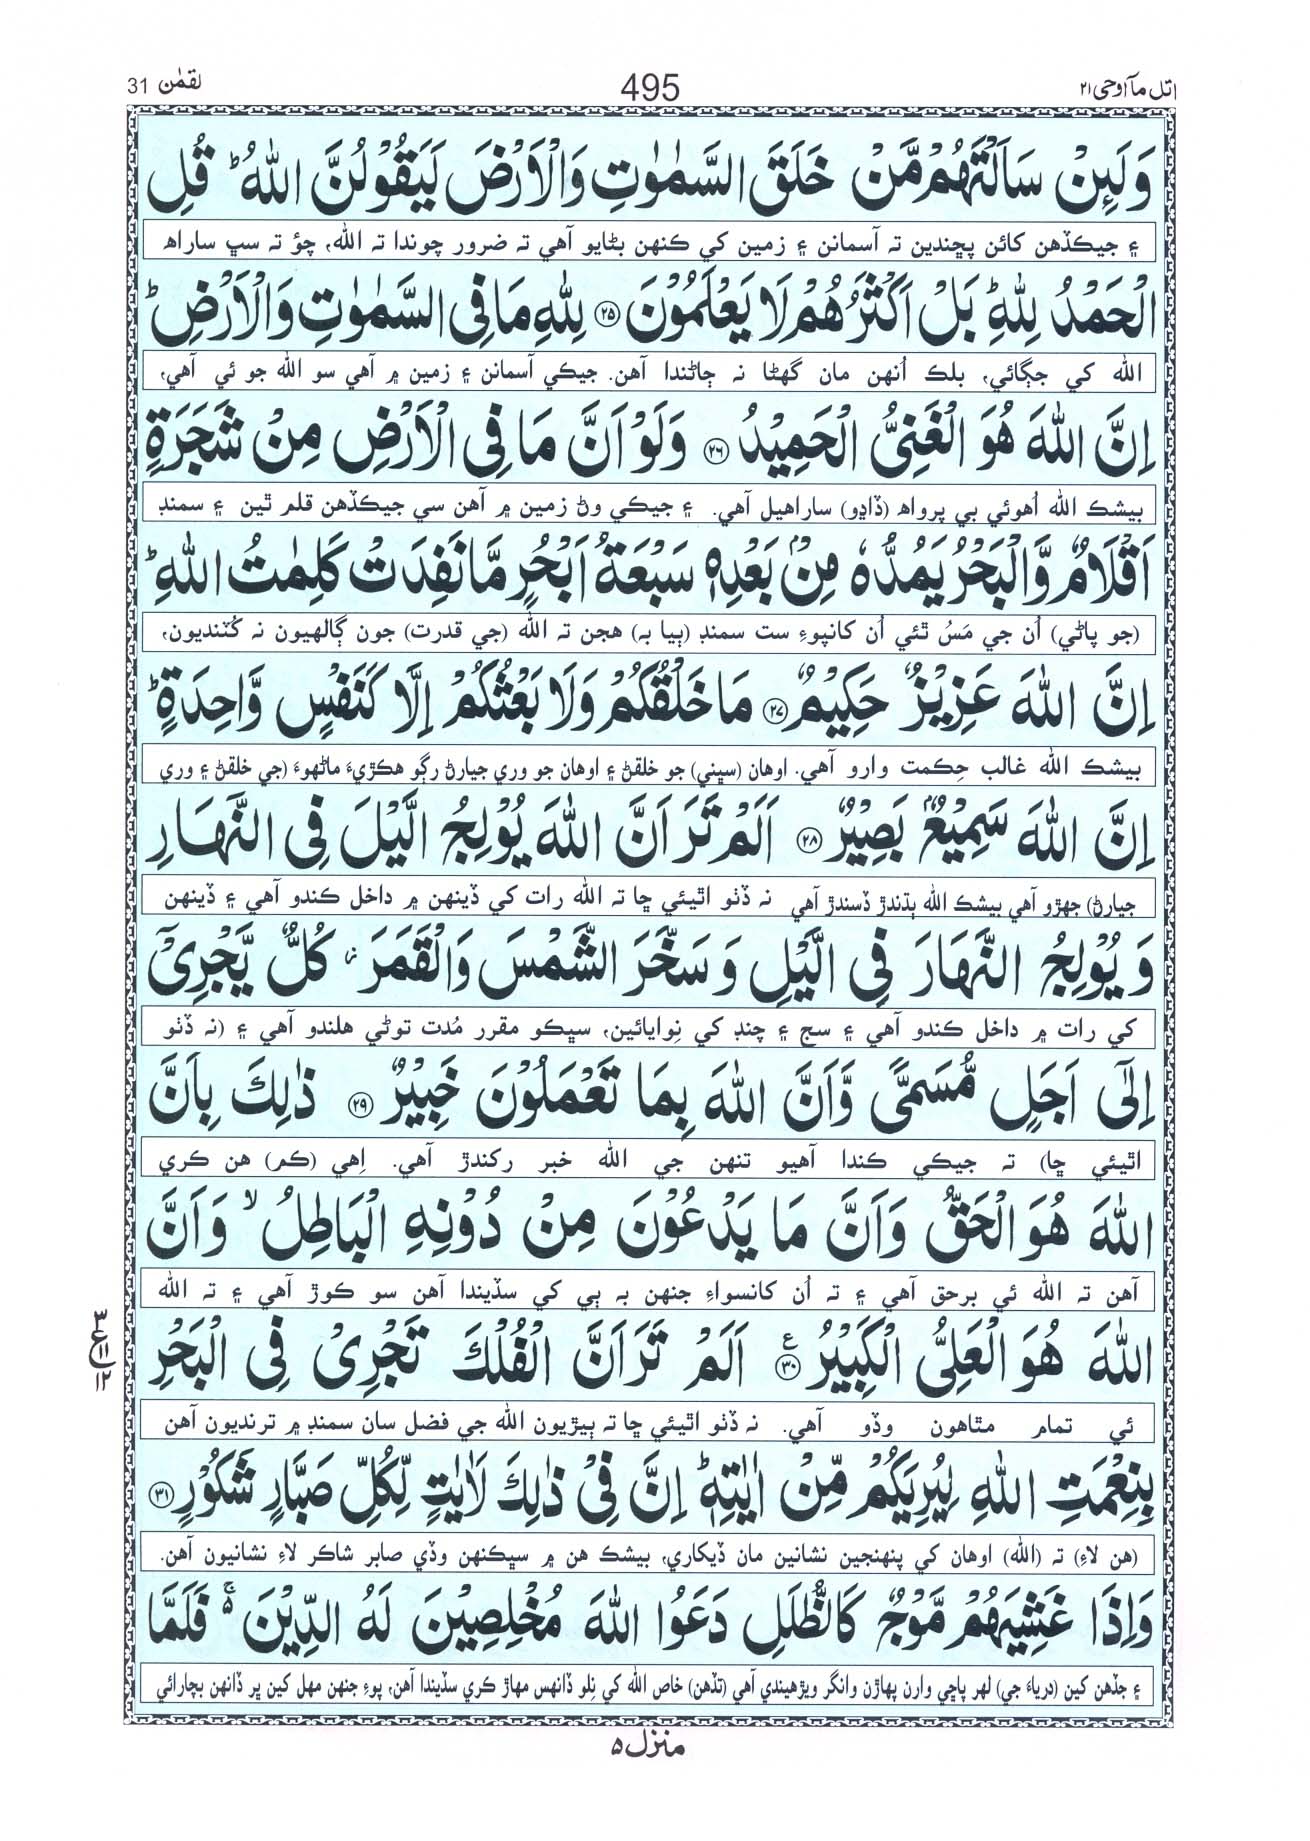 اتل مآ اوحی ۲۱
495
لقمٰن 31
وَلَىِٕنْ سَاَلْتَهُمْ مَّنْ خَلَقَ السَّمٰوٰتِ وَالْاَرْضَ لَيَقُوْلُنَّ اللّٰهُ ؕ قُلِ
۽ جيڪڏهن کائن پڇندين ته آسمانن ۽ زمين کي ڪنهن بڻايو آهي ته ضرور چوندا ته الله، چؤ ته سڀ ساراھ
الْحَمْدُ لِلّٰهِ ؕ بَلْ اَكْثَرُهُمْ لَا يَعْلَمُوْنَ ۝۲۵ لِلّٰهِ مَا فِى السَّمٰوٰتِ وَالْاَرْضِ ؕ
الله کي جڳائي، بلڪ اُنهن مان گھڻا نه ڄاڻندا آهن. جيڪي آسمانن ۽ زمين ۾ آهي سو الله جو ئي آهي،
اِنَّ اللّٰهَ هُوَ الْغَنِىُّ الْحَمِيْدُ ۝۲۶ وَلَوْ اَنَّ مَا فِى الْاَرْضِ مِنْ شَجَرَةٍ
بيشڪ الله اُهوئي بي پرواھ (ڏاڍو) ساراهيل آهي. ۽ جيڪي وڻ زمين ۾ آهن سي جيڪڏهن قلم ٿين ۽ سمنڊ
اَقْلَامٌ وَّالْبَحْرُ يَمُدُّهٗ مِنْۢ بَعْدِهٖ سَبْعَةُ اَبْحُرٍ مَّا نَفِدَتْ كَلِمٰتُ اللّٰهِ ؕ
(جو پاڻي) اُن جي مَسُ ٿئي اُن کانپوءِ ست سمنڊ (ٻيا به) هجن ته الله (جي قدرت) جون ڳالهيون نه کُٽنديون،
اِنَّ اللّٰهَ عَزِيْزٌ حَكِيْمٌ ۝۲۷ مَا خَلْقُكُمْ وَلَا بَعْثُكُمْ اِلَّا كَنَفْسٍ وَّاحِدَةٍ ؕ
بيشڪ الله غالب حِڪمت وارو آهي. اوهان (سڀني) جو خلقڻ ۽ اوهان جو وري جيارڻ رڳو هڪڙيءَ ماڻهوءَ (جي خلقڻ ۽ وري
اِنَّ اللّٰهَ سَمِيْعٌۢ بَصِيْرٌ ۝۲۸ اَلَمْ تَرَ اَنَّ اللّٰهَ يُوْلِجُ الَّيْلَ فِى النَّهَارِ
جيارڻ) جهڙو آهي بيشڪ الله ٻڌندڙ ڏسندڙ آهي نه ڏٺو اٿيئي ڇا ته الله رات کي ڏينهن ۾ داخل ڪندو آهي ۽ ڏينهن
وَ يُوْلِجُ النَّهَارَ فِى الَّيْلِ وَ سَخَّرَ الشَّمْسَ وَالْقَمَرَ ؗ كُلٌّ يَّجْرِىْۤ
کي رات ۾ داخل ڪندو آهي ۽ سج ۽ چنڊ کي نِوايائين، سڀڪو مقرر مُدت توڻي هلندو آهي ۽ (نه ڏٺو
اِلٰٓى اَجَلٍ مُّسَمًّى وَّاَنَّ اللّٰهَ بِمَا تَعْمَلُوْنَ خَبِيْرٌ ۝۲۹ ذٰلِكَ بِاَنَّ
اٿيئي ڇا) ته جيڪي ڪندا آهيو تنهن جي الله خبر رکندڙ آهي. اِهي (ڪم) هن ڪري
اللّٰهَ هُوَ الْحَقُّ وَاَنَّ مَا يَدْعُوْنَ مِنْ دُوْنِهِ الْبَاطِلُ ۙ وَاَنَّ
آهن ته الله ئي برحق آهي ۽ ته اُن کانسواءِ جنهن به ٻي کي سڏيندا آهن سو ڪوڙ آهي ۽ ته الله
اللّٰهَ هُوَ الْعَلِىُّ الْكَبِيْرُ ۝۳۰ ع اَلَمْ تَرَ اَنَّ الْفُلْكَ تَجْرِىْ فِى الْبَحْرِ
۳ ع ۱۱ ۱۲
ئي تمام مٿاهون وڏو آهي. نه ڏٺو اٿيئي ڇا ته ٻيڙيون الله جي فضل سان سمنڊ ۾ ترنديون آهن
بِنِعْمَتِ اللّٰهِ لِيُرِيَكُمْ مِّنْ اٰيٰتِهٖ ؕ اِنَّ فِىْ ذٰلِكَ لَاٰيٰتٍ لِّكُلِّ صَبَّارٍ شَكُوْرٍ ۝۳۱
(هن لاءِ) ته (الله) اوهان کي پنهنجين نشانين مان ڏيکاري، بيشڪ هن ۾ سڀڪنهن وڏي صابر شاڪر لاءِ نشانيون آهن.
وَاِذَا غَشِيَهُمْ مَّوْجٌ كَالظُّلَلِ دَعَوُا اللّٰهَ مُخْلِصِيْنَ لَهُ الدِّيْنَ ۚ۬ فَلَمَّا
۽ جڏهن کين (درياءَ جي) لهر پاڇي وارن پهاڙن وانگر ويڙهيندي آهي (تڏهن) خاص الله کي نِلو ڏانهس مهاڙ ڪري سڏيندا آهن، پوءِ جنهن مهل کين ٻر ڏانهن بچارائي
منزل ۵